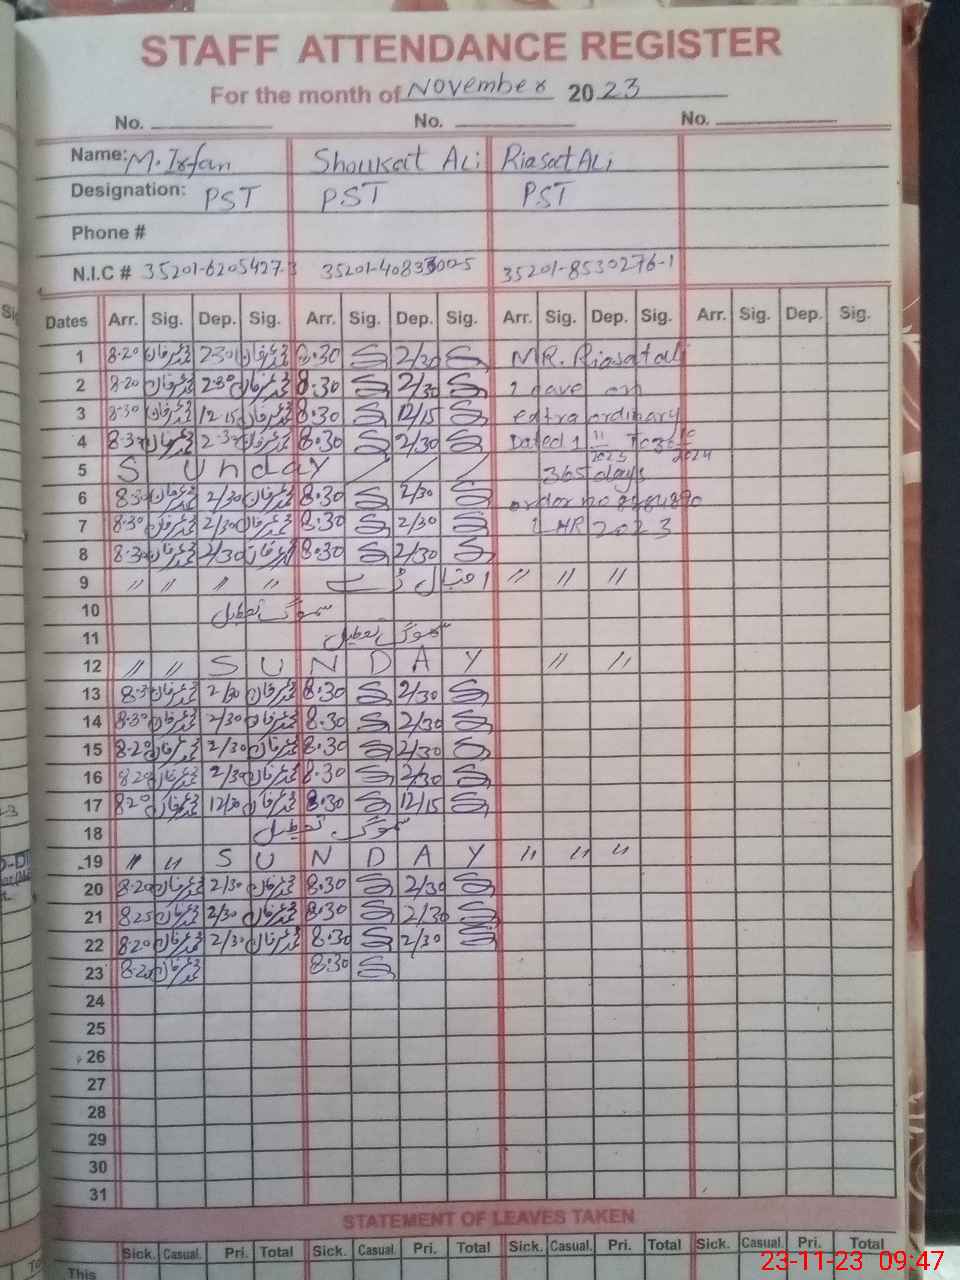 STAFF ATTENDANCE REGISTER
For the month of November 2023
No. No. No.
Name: M. Irfan Shoukat Ali Riasat Ali
Designation: PST PST PST
Phone #
N.I.C # 35201-6205427-3 35201-4083300-5 35201-8530276-1
Dates Arr. Sig. Dep. Sig. Arr. Sig. Dep. Sig. Arr. Sig. Dep. Sig. Arr. Sig. Dep. Sig.
1 8-20 محمد عرفان 230 محمد عرفان 8.30 2/30 MR. Riasat ali
2 8-20 محمد عرفان 2-30 محمد عرفان 8.30 2/30 leave on
3 8-30 محمد عرفان 12-15 محمد عرفان 8.30 12/15 extra ordinary
4 8-30 محمد عرفان 2-30 محمد عرفان 8.30 2/30 Dated 1 11 2023 To 30 10 2024
5 Sunday 365 days
6 8-30 محمد عرفان 2/30 محمد عرفان 8.30 2/30 order no
7 8-30 محمد عرفان 2/30 محمد عرفان 8.30 2/30 LHR 2023
8 8-30 محمد عرفان 2/30 محمد عرفان 8.30 2/30
9 〃 〃 〃 〃 اقبال ڈے 〃 〃 〃
10 سموگ تعطیل
11 سموگ تعطیل
12 〃 〃 SUNDAY 〃 〃
13 8-3 محمد عرفان 2/30 محمد عرفان 8.30 2/30
14 8-30 محمد عرفان 2/30 محمد عرفان 8.30 2/30
15 8-20 محمد عرفان 2/30 محمد عرفان 8.30 2/30
16 820 محمد عرفان 2/30 محمد عرفان 8.30 2/30
17 820 محمد عرفان 12/10 محمد عرفان 8.30 12/15
18 سموگ تعطیل
19 〃 〃 SUNDAY 〃 〃 〃
20 8-20 محمد عرفان 2/30 محمد عرفان 8.30 2/30
21 825 محمد عرفان 2/30 محمد عرفان 8.30 2/30
22 820 محمد عرفان 2/30 محمد عرفان 8.30 2/30
23 8-20 محمد عرفان 8.30
24
25
26
27
28
29
30
31
STATEMENT OF LEAVES TAKEN
Sick. Casual. Pri. Total Sick. Casual. Pri. Total Sick. Casual. Pri. Total Sick. Casual. Pri. Total
This
23-11-23 09:47